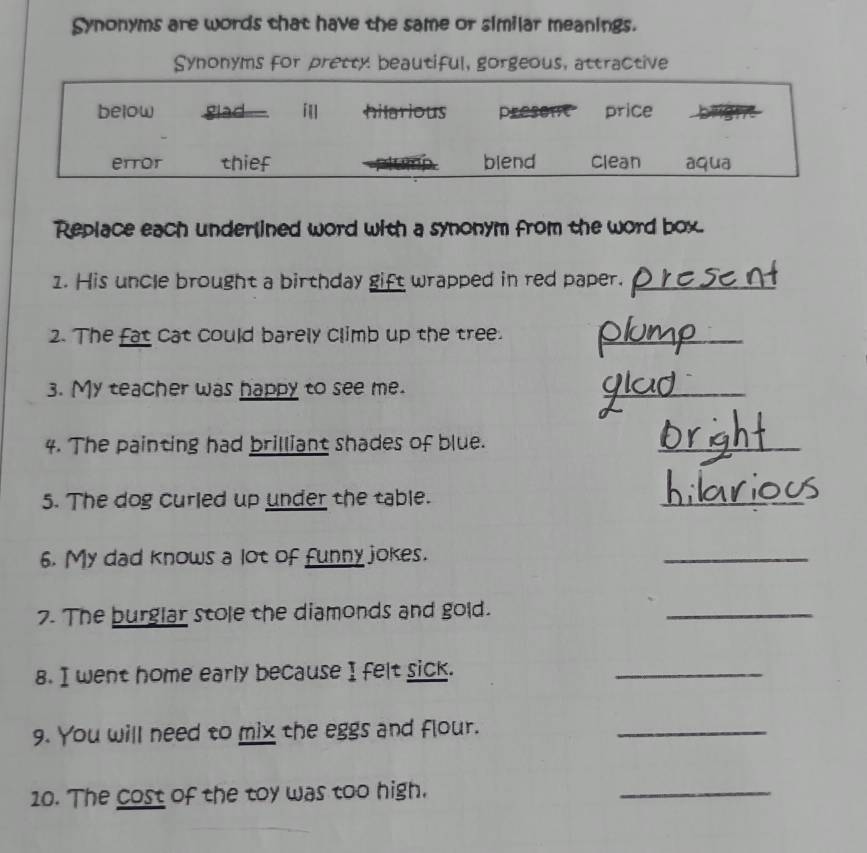 Synonyms are words that have the same or similar meanings.
Synonyms for pretty: beautiful, gorgeous, attractive
below glad ill hilarious present price bright
error thief plump blend clean aqua
Replace each underlined word with a synonym from the word box.
1. His uncle brought a birthday gift wrapped in red paper. present
2. The fat cat could barely climb up the tree. plump
3. My teacher was happy to see me. glad
4. The painting had brilliant shades of blue. bright
5. The dog curled up under the table. hilarious
6. My dad knows a lot of funny jokes.
7. The burglar stole the diamonds and gold.
8. I went home early because I felt sick.
9. You will need to mix the eggs and flour.
10. The cost of the toy was too high.